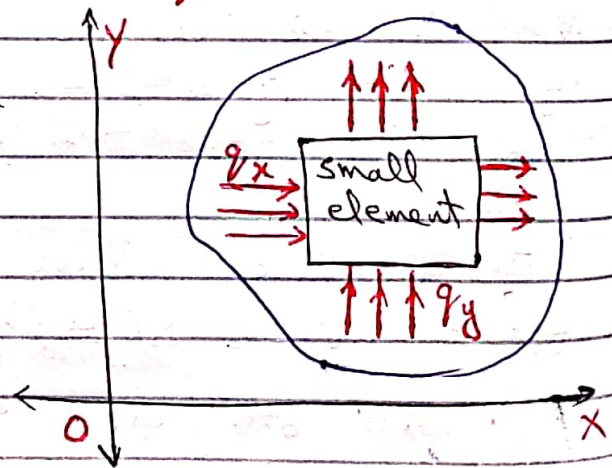 Y
qx
small
element
qy
O
X